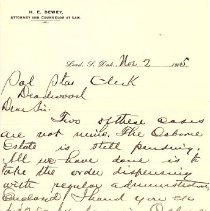 H. E. DEWEY,
ATTORNEY AND COUNSELOR AT LAW.
Lead, S. Dak., Nov 2 1905
Clerk
Deadwood
Dear Sir:
Two of these cases
are not mine. The Osborne
Estate is still pending.
All we have done is to
take the order dispensing
with regular administration
Enclosed I hand you